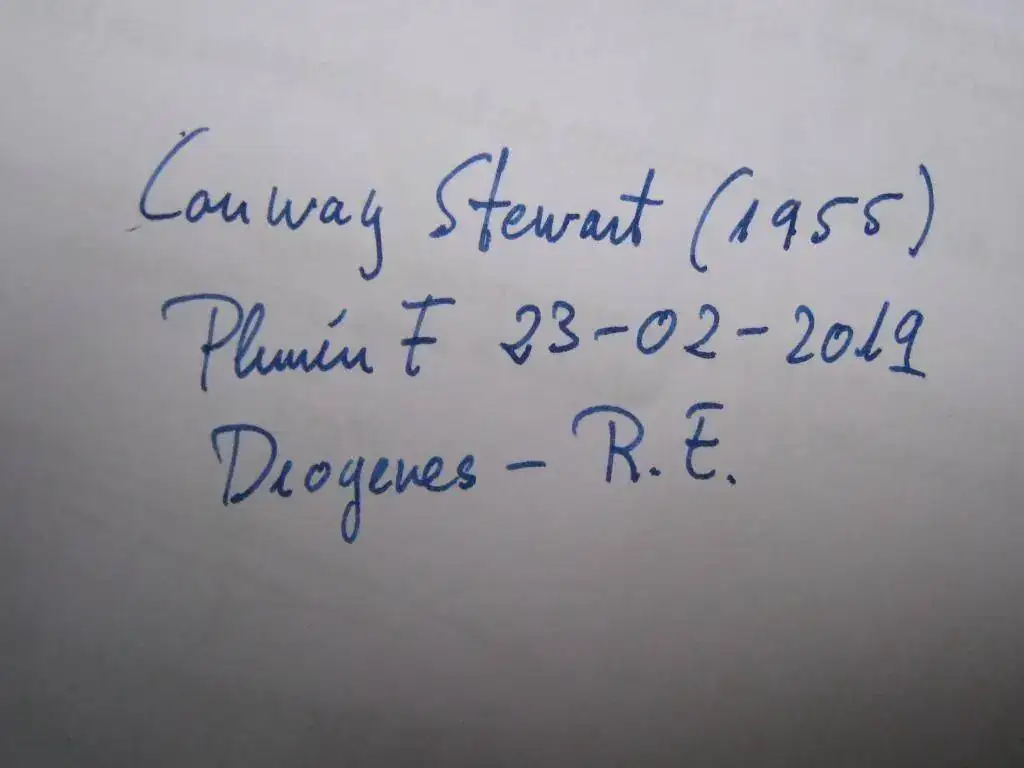 Conway Stewart (1955)
Plumín F 23-02-2019
Diogenes - R.E.